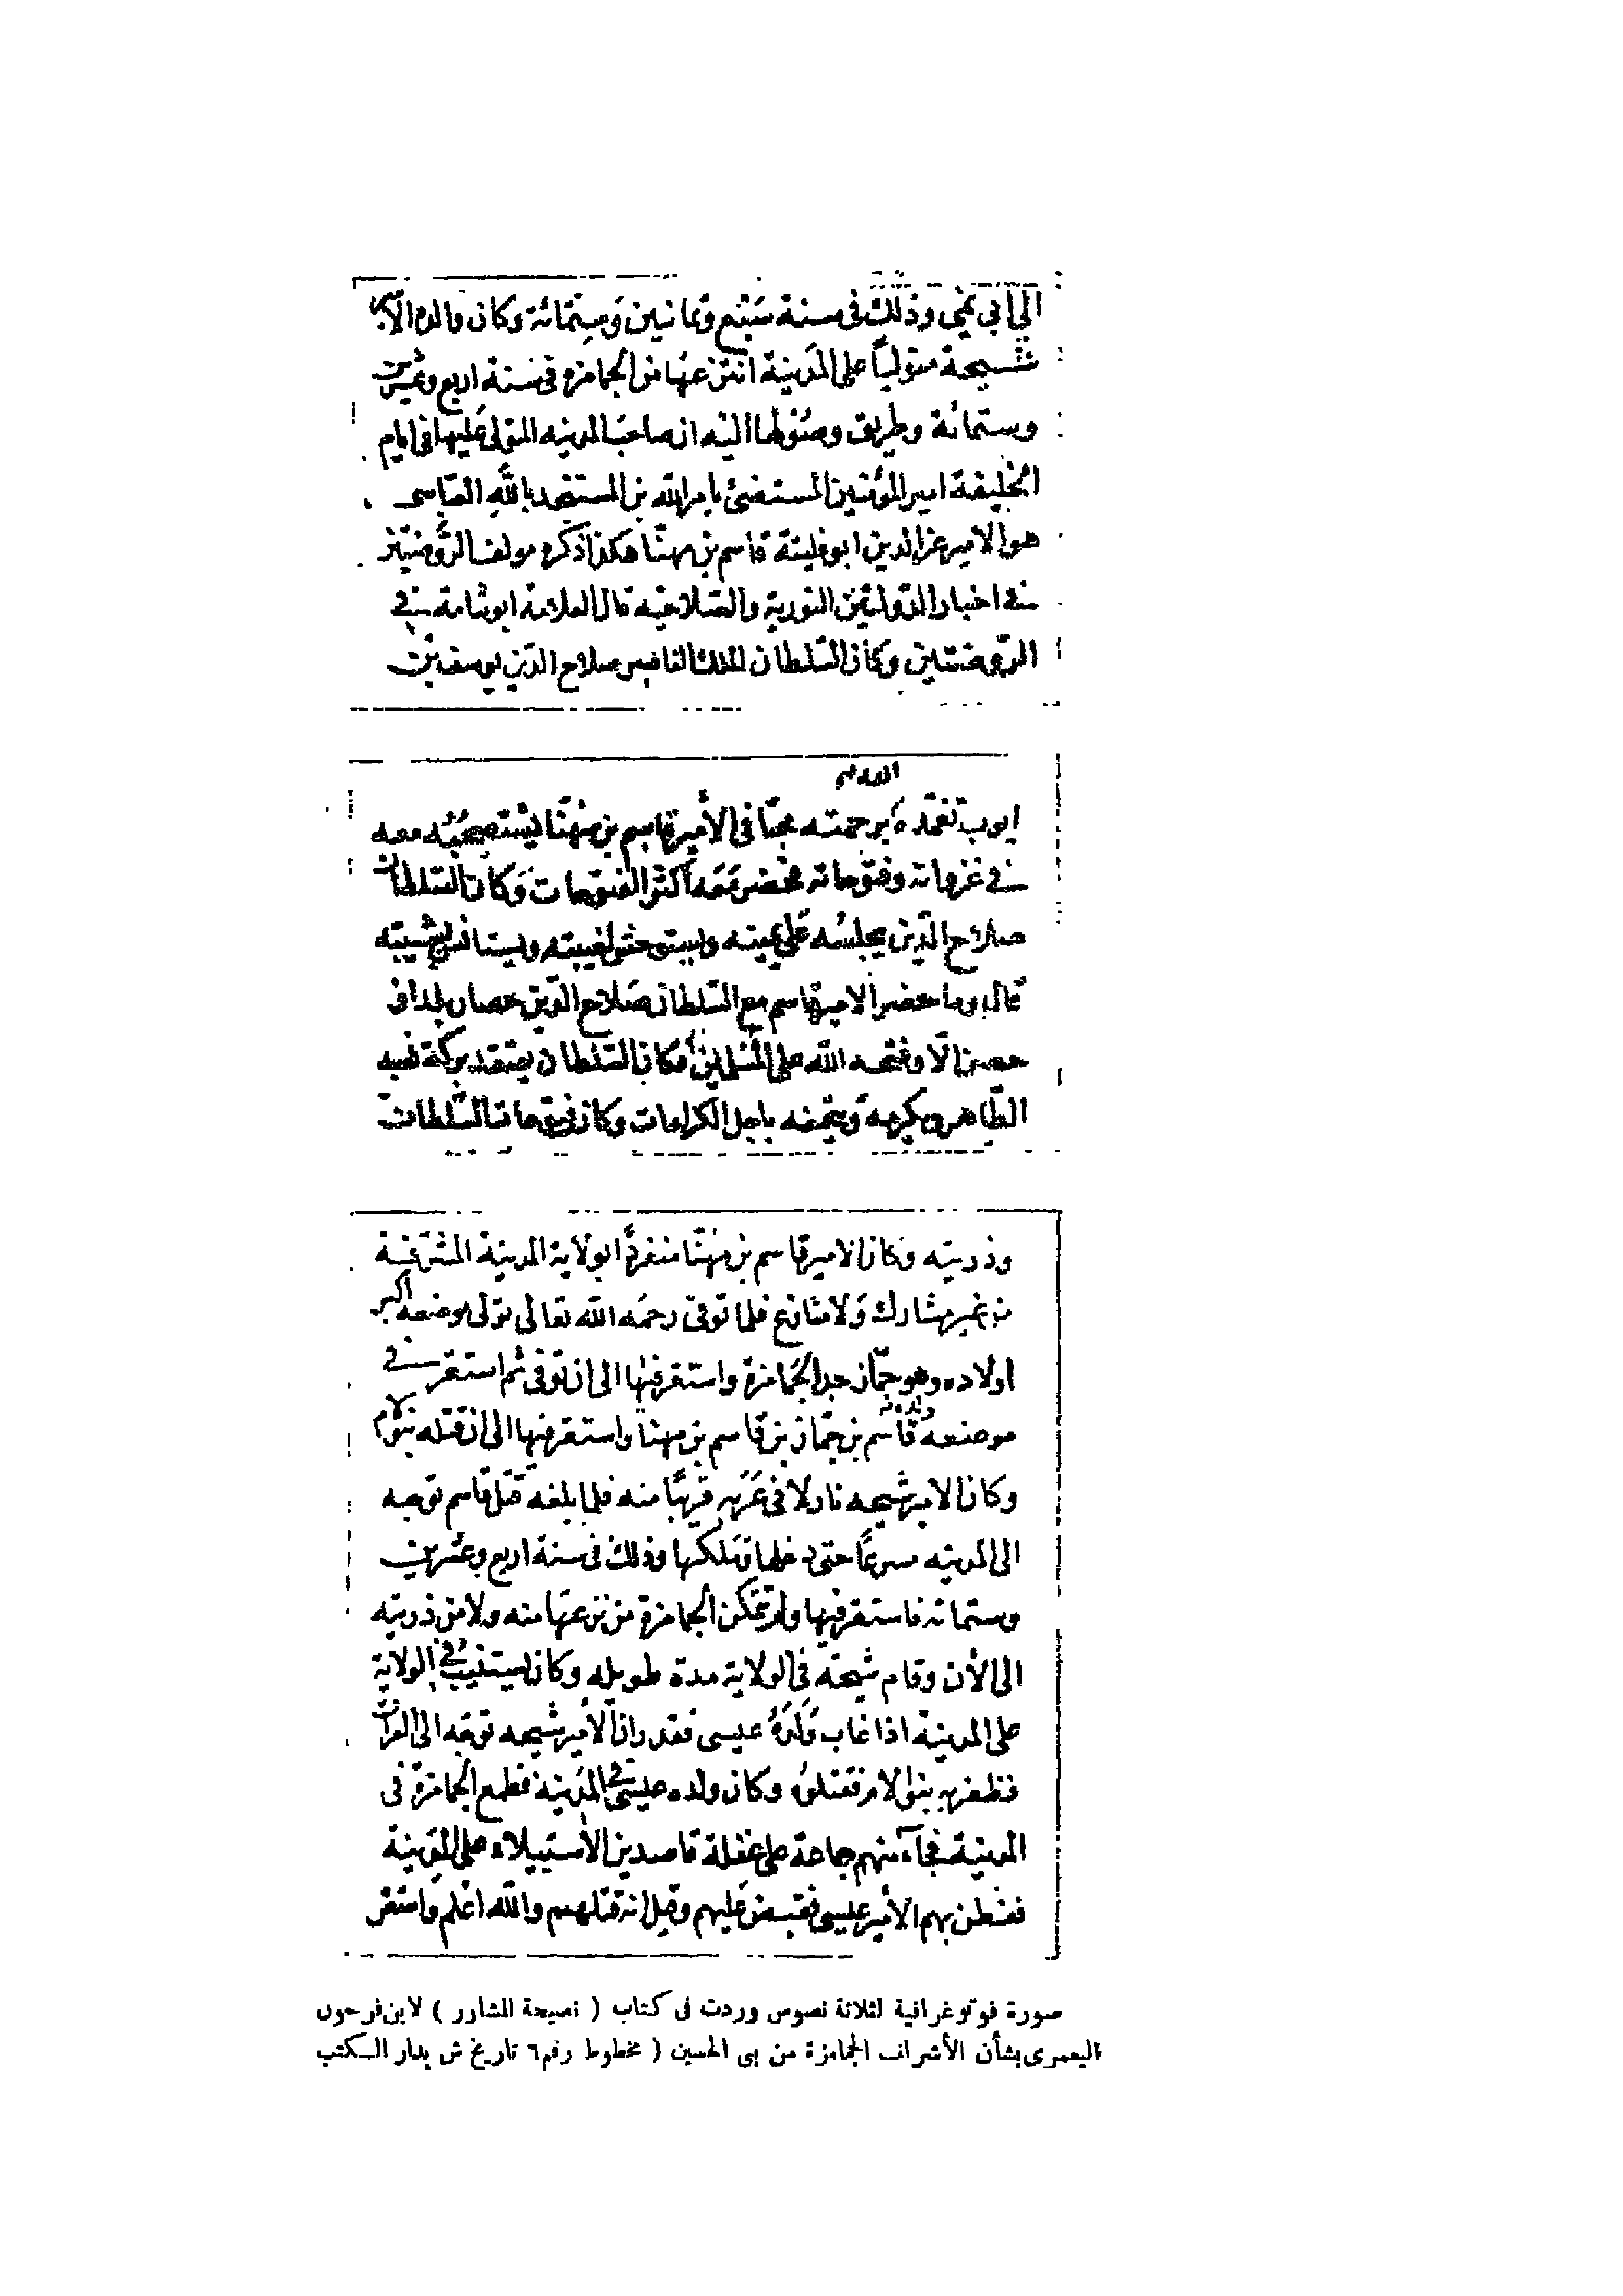 الى أبي نمي وذلك في سنة سَبْع وثمانين وَستمائة وكان والده الأمير
شيحة متولياً على المدينة انتزعها من الجمامزه في سنة اربع وعشرين
وستمائة وطريق وصُولها اليه ان صاحبَ المدينه المتولي عليها في ايام
الخليفة امير المؤمنين المستضئ بامر الله بن المستنجد بالله العباسى
هو الامير عز الدين ابو فليتة قاسم بن مهنّا هكذا ذكره مولف الروضتين
في اخبار الدولتين النورية والصلاحيه قال العلامة ابو شامة في
الروضتين وكان السّلطان الملك الناصر صلاح الدّين يوسف بن
ايوب تغمّده الله برحمته محبّاً في الأمير قاسم بن مهنّا يستصحبُه معه
في غزواته وفتوحاته فحضر مَعَه أكثر الفتوحات وَكان السّلطان
صلاح الدّين يجلسُه عَلى يمينه ويستوحش لغيبته ويستانس بشيبته
قال وما حضر الامير قاسم مع السّلطان صَلاح الدّين حصار بلد اف
حصن الّا وفتحه الله على المسْلمين فكان السّلطان يعتقد بركة نسبه
الطّاهر ويكرمه وَيتحفه باجل الكرامات وكان فتوحات السّلطان
وذريته وكان الامير قاسم بن مهنّا منفردًا بولاية المدينة المشرّفة
من غير مشارك وَلا منازع فلما توفى رحمَه الله تعالى تولى موضعه أكبر
اولاده وهو جمّاز جد الجَمامزة واستقر فيها الى ان توفى ثم استقر في
موضعه ولده قاسم بن جمّاز بن قاسم بن مهنا واستقر فيها الى ان قتله بنو لام
وكان الامير شيحه نازلا في عربه قريبًا منه فلما بلغه قتل قاسم توجه
الى المدينه مسرعًا حتى دخلها وَملكها وذلك في سنة اربع وعشرين
وستمائه فاستقر فيها ولم تتمكن الجمامزة من نزعهَا منه ولا من ذريته
الى الأن وقام شيحة في الولاية مدة طويله وكان يستنيبُ في الولاية
على المدينة اذا غاب وَلَدَهُ عيسى فقدر انّ الأمير شيحه توجّه الى العراق
فظفر به بنو لام فقتلوه وكان ولده عيسى في المدَينة فطمع الجمامزة في
المدينة فجآء منهم جماعة على غفلة قاصدين الأستيلاء على المدينة
ففطن بهم الأمير عيسى فقبض عَليهم وقيل انه قتلهم والله اعْلم وَاستقر
صورة فوتوغرافية لثلاثة نصوص وردت فى كتاب ( نصيحة المشاور ) لابن فرحون
اليعمرى بشأن الأشراف الجمامزة من بنى الحسين ( مخطوط رقم ٦ تاريخ ش بدار الكتب